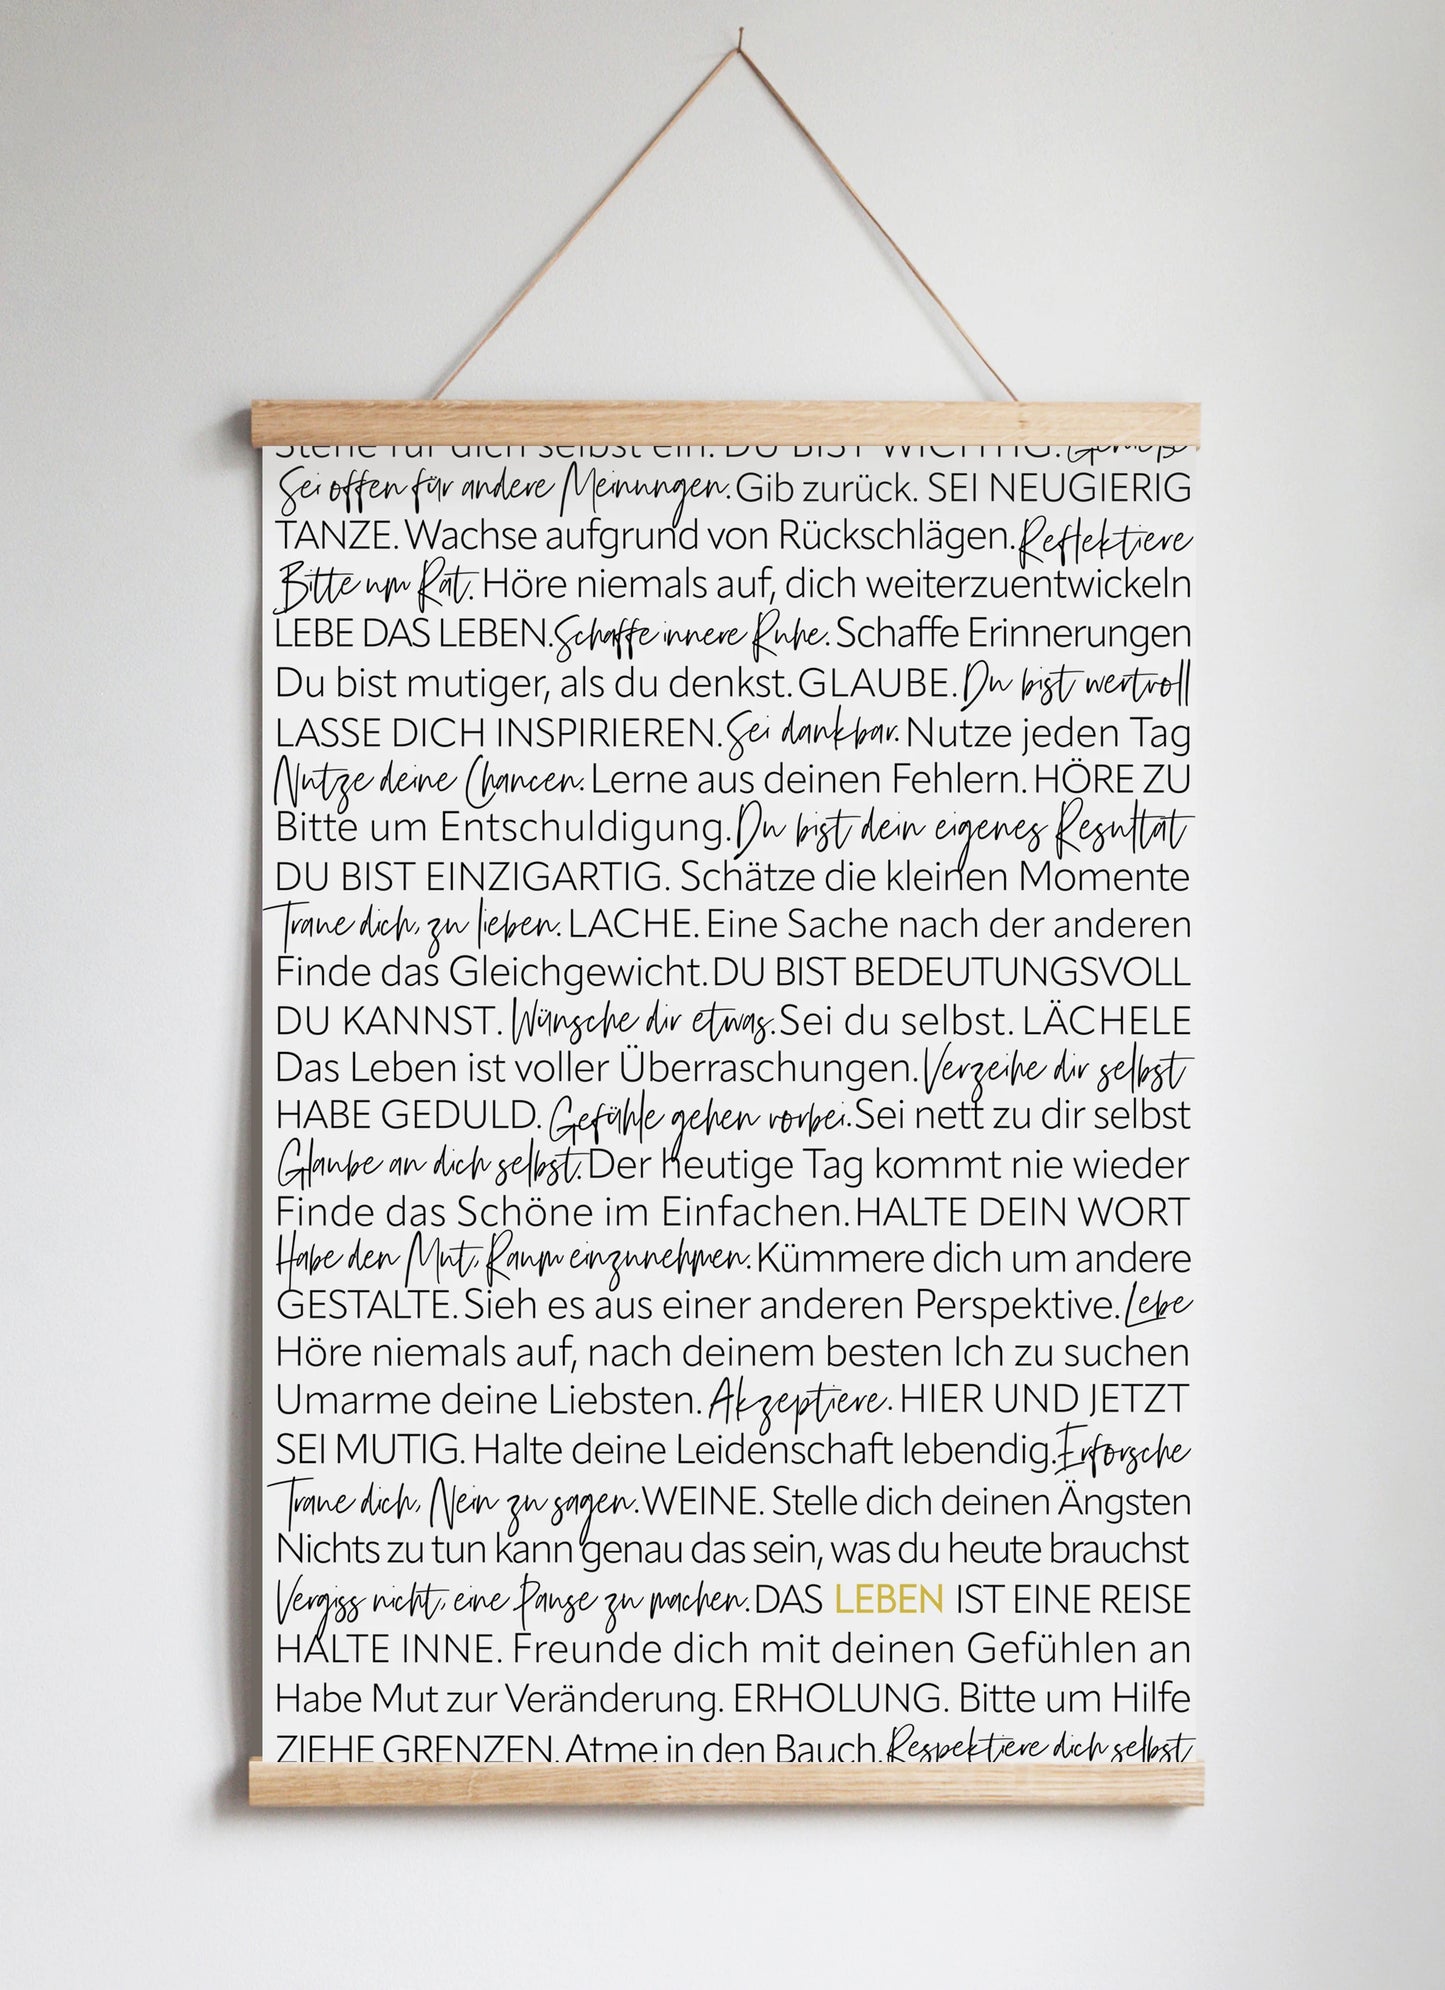 Stehe für dich selbst ein. DU BIST WICHTIG. Genieße
Sei offen für andere Meinungen. Gib zurück. SEI NEUGIERIG
TANZE. Wachse aufgrund von Rückschlägen. Reflektiere
Bitte um Rat. Höre niemals auf, dich weiterzuentwickeln
LEBE DAS LEBEN. Schaffe innere Ruhe. Schaffe Erinnerungen
Du bist mutiger, als du denkst. GLAUBE. Du bist wertvoll
LASSE DICH INSPIRIEREN. Sei dankbar. Nutze jeden Tag
Nutze deine Chancen. Lerne aus deinen Fehlern. HÖRE ZU
Bitte um Entschuldigung. Du bist dein eigenes Resultat
DU BIST EINZIGARTIG. Schätze die kleinen Momente
Traue dich, zu lieben. LACHE. Eine Sache nach der anderen
Finde das Gleichgewicht. DU BIST BEDEUTUNGSVOLL
DU KANNST. Wünsche dir etwas. Sei du selbst. LÄCHELE
Das Leben ist voller Überraschungen. Verzeihe dir selbst
HABE GEDULD. Gefühle gehen vorbei. Sei nett zu dir selbst
Glaube an dich selbst. Der heutige Tag kommt nie wieder
Finde das Schöne im Einfachen. HALTE DEIN WORT
Habe den Mut, Raum einzunehmen. Kümmere dich um andere
GESTALTE. Sieh es aus einer anderen Perspektive. Lebe
Höre niemals auf, nach deinem besten Ich zu suchen
Umarme deine Liebsten. Akzeptiere. HIER UND JETZT
SEI MUTIG. Halte deine Leidenschaft lebendig. Erforsche
Traue dich, Nein zu sagen. WEINE. Stelle dich deinen Ängsten
Nichts zu tun kann genau das sein, was du heute brauchst
Vergiss nicht, eine Pause zu machen. DAS LEBEN IST EINE REISE
HALTE INNE. Freunde dich mit deinen Gefühlen an
Habe Mut zur Veränderung. ERHOLUNG. Bitte um Hilfe
ZIEHE GRENZEN. Atme in den Bauch. Respektiere dich selbst